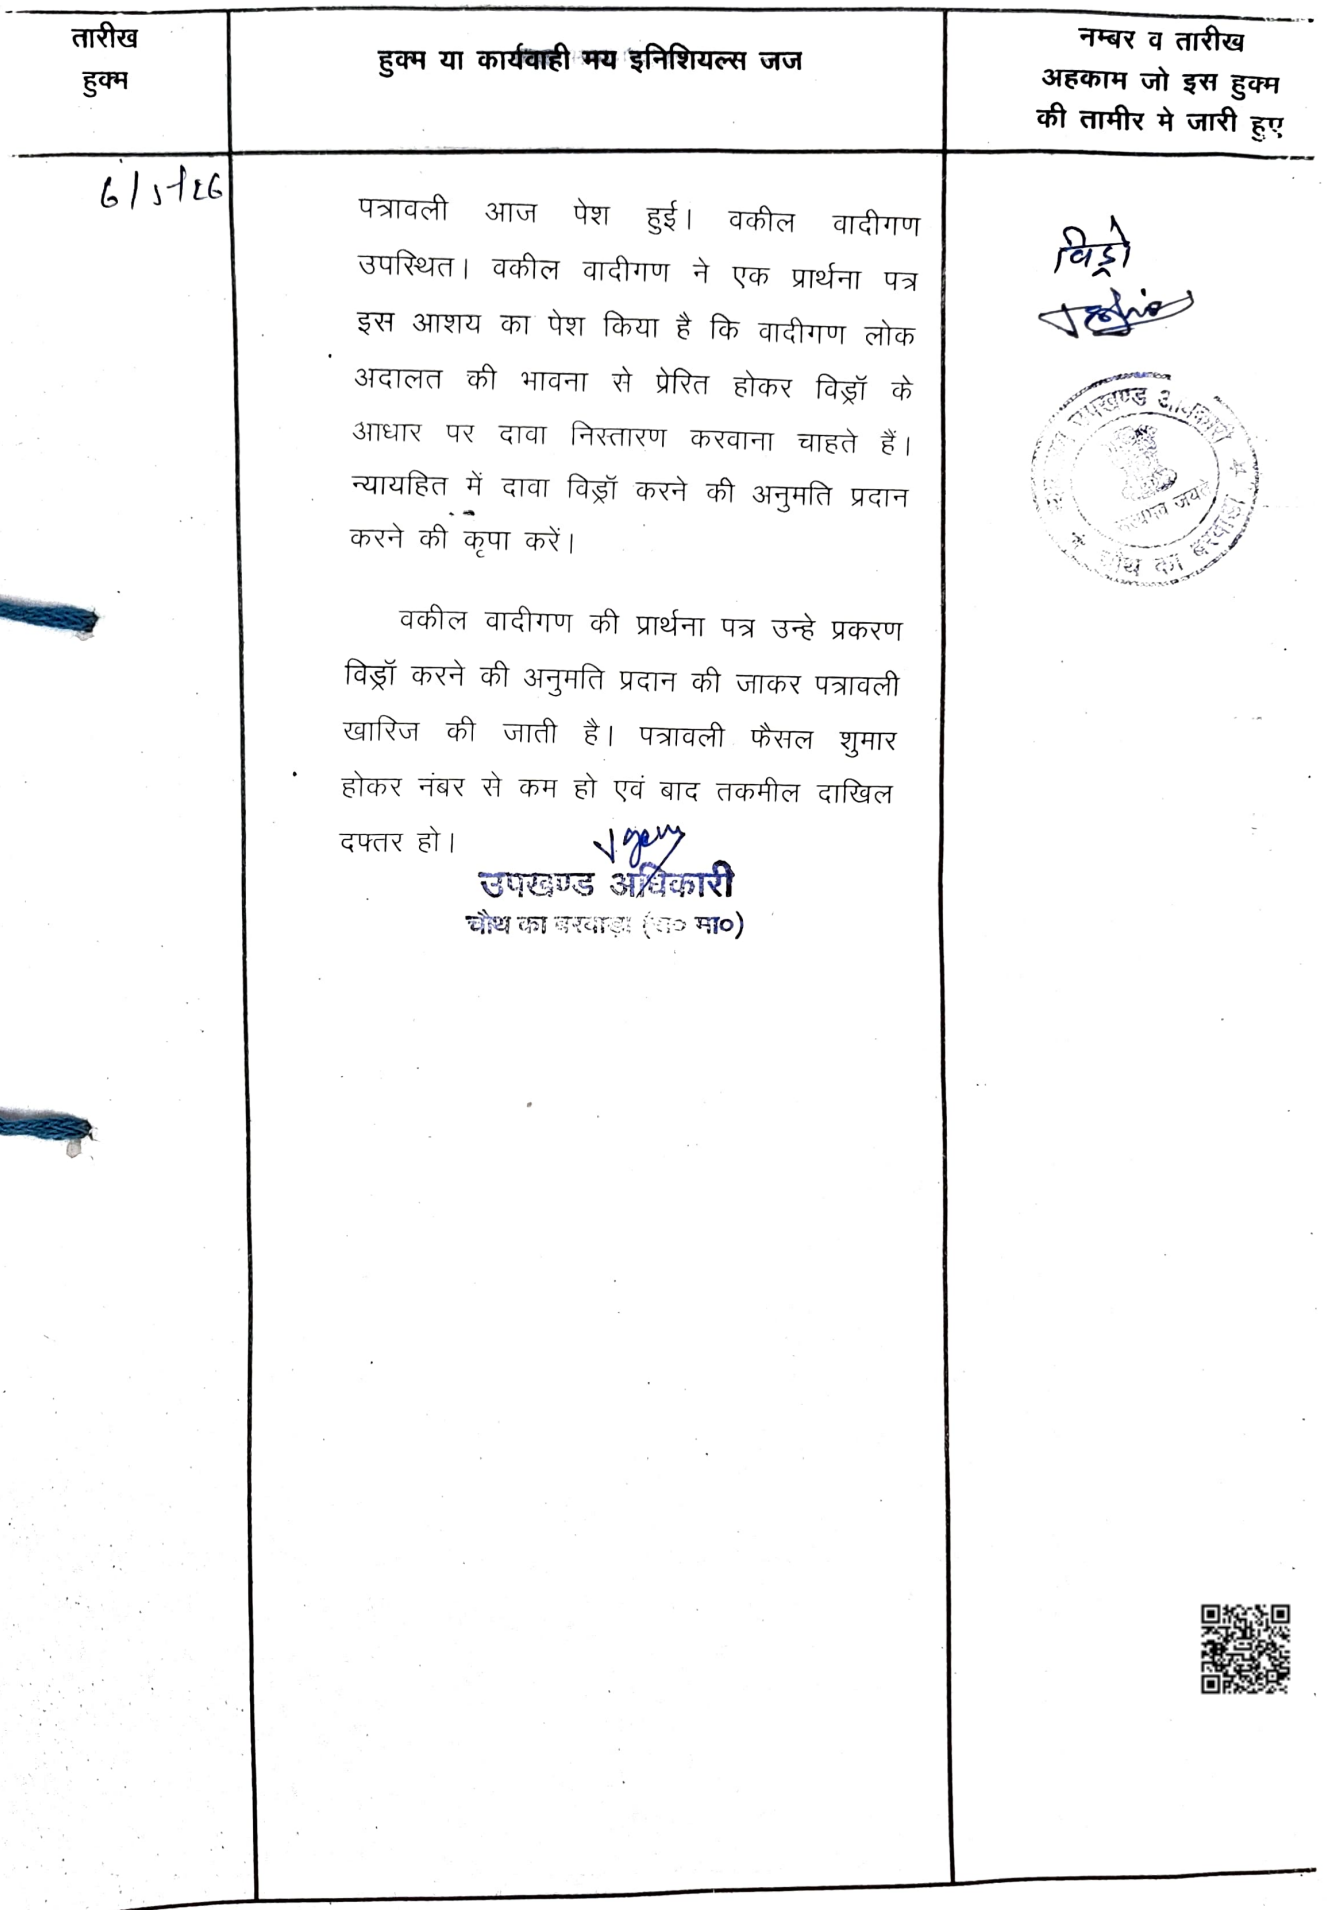 तारीख
हुक्म
हुक्म या कार्यवाही मय इनिशियल्स जज
नम्बर व तारीख
अहकाम जो इस हुक्म
की तामीर मे जारी हुए
6/5/26
पत्रावली आज पेश हुई। वकील वादीगण
उपस्थित। वकील वादीगण ने एक प्रार्थना पत्र
इस आशय का पेश किया है कि वादीगण लोक
अदालत की भावना से प्रेरित होकर विड्रॉ के
आधार पर दावा निस्तारण करवाना चाहते हैं।
न्यायहित में दावा विड्रॉ करने की अनुमति प्रदान
करने की कृपा करें।
वकील वादीगण की प्रार्थना पत्र उन्हे प्रकरण
विड्रॉ करने की अनुमति प्रदान की जाकर पत्रावली
खारिज की जाती है। पत्रावली फैसल शुमार
होकर नंबर से कम हो एवं बाद तकमील दाखिल
दफ्तर हो।
उपखण्ड अधिकारी
चौथ का बरवाड़ा (स० मा०)
विड्रो
उपखण्ड अधिकारी
सत्यमेव जयते
चौथ का बरवाडा